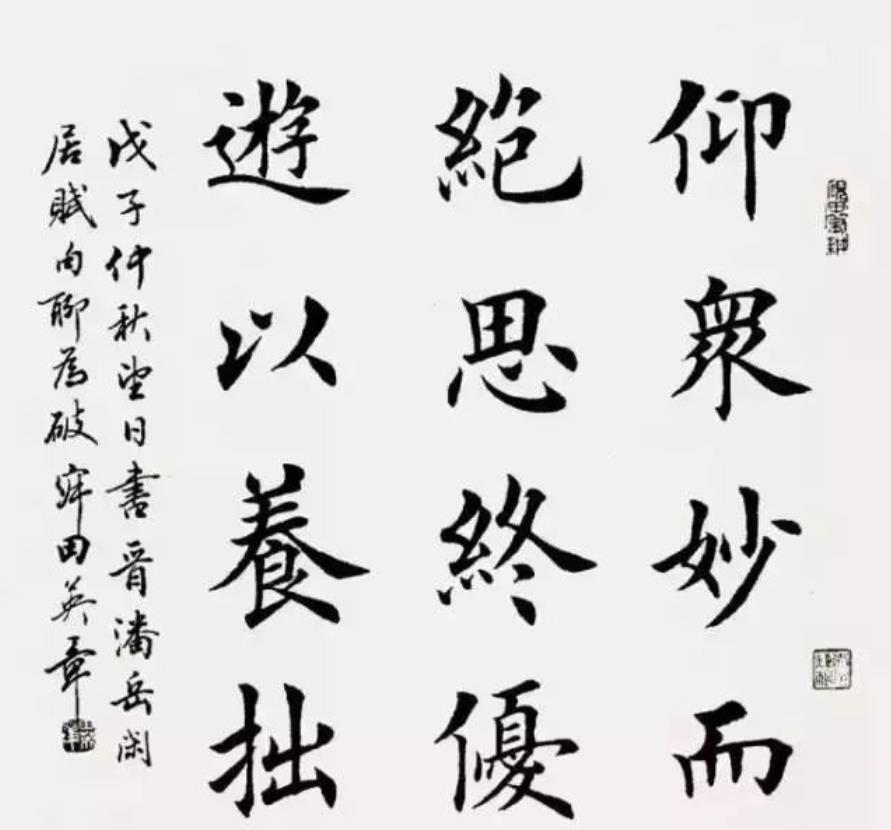 仰眾妙而
絶思終優
遊以養拙
戊子仲秋望日書晉潘岳閑
居賦句聊為破田英章